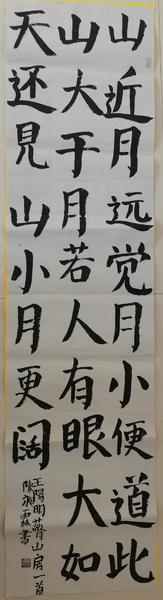 山近月远觉月小便道此
山大于月若人有眼大如
天还见山小月更阔
王阳明蔽月山房一首